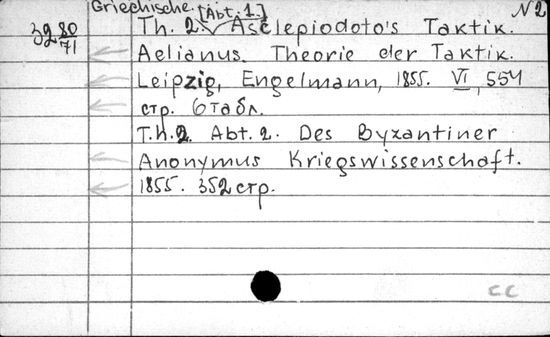 Griechische. [Abt. 1.] N 2
Th. 2. Asclepiodoto's Taktik.
39 80/71
Aelianus. Theorie der Taktik.
Leipzig, Engelmann, 1855. VI, 554
стр. 6 табл.
T.h.2. Abt. 2. Des Byzantiner
Anonymus Kriegswissenschaft.
1855. 352 стр.
cc